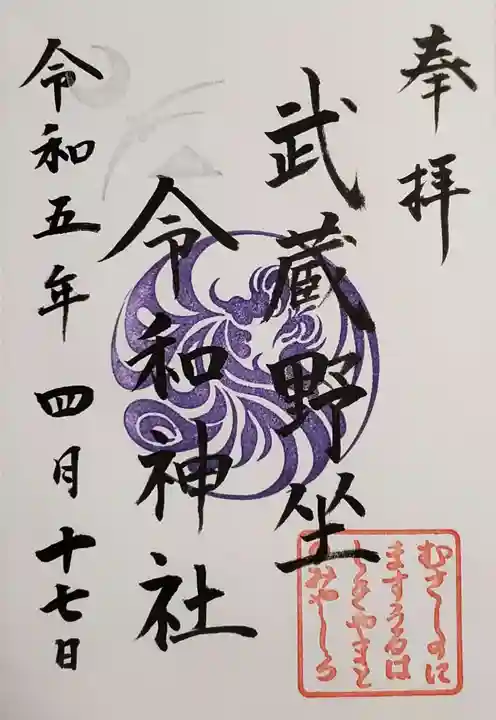 奉拝
武蔵野坐
令和神社
令和五年 四月十七日
むさしのに
ますうるは
しきやまと
のみやしろ